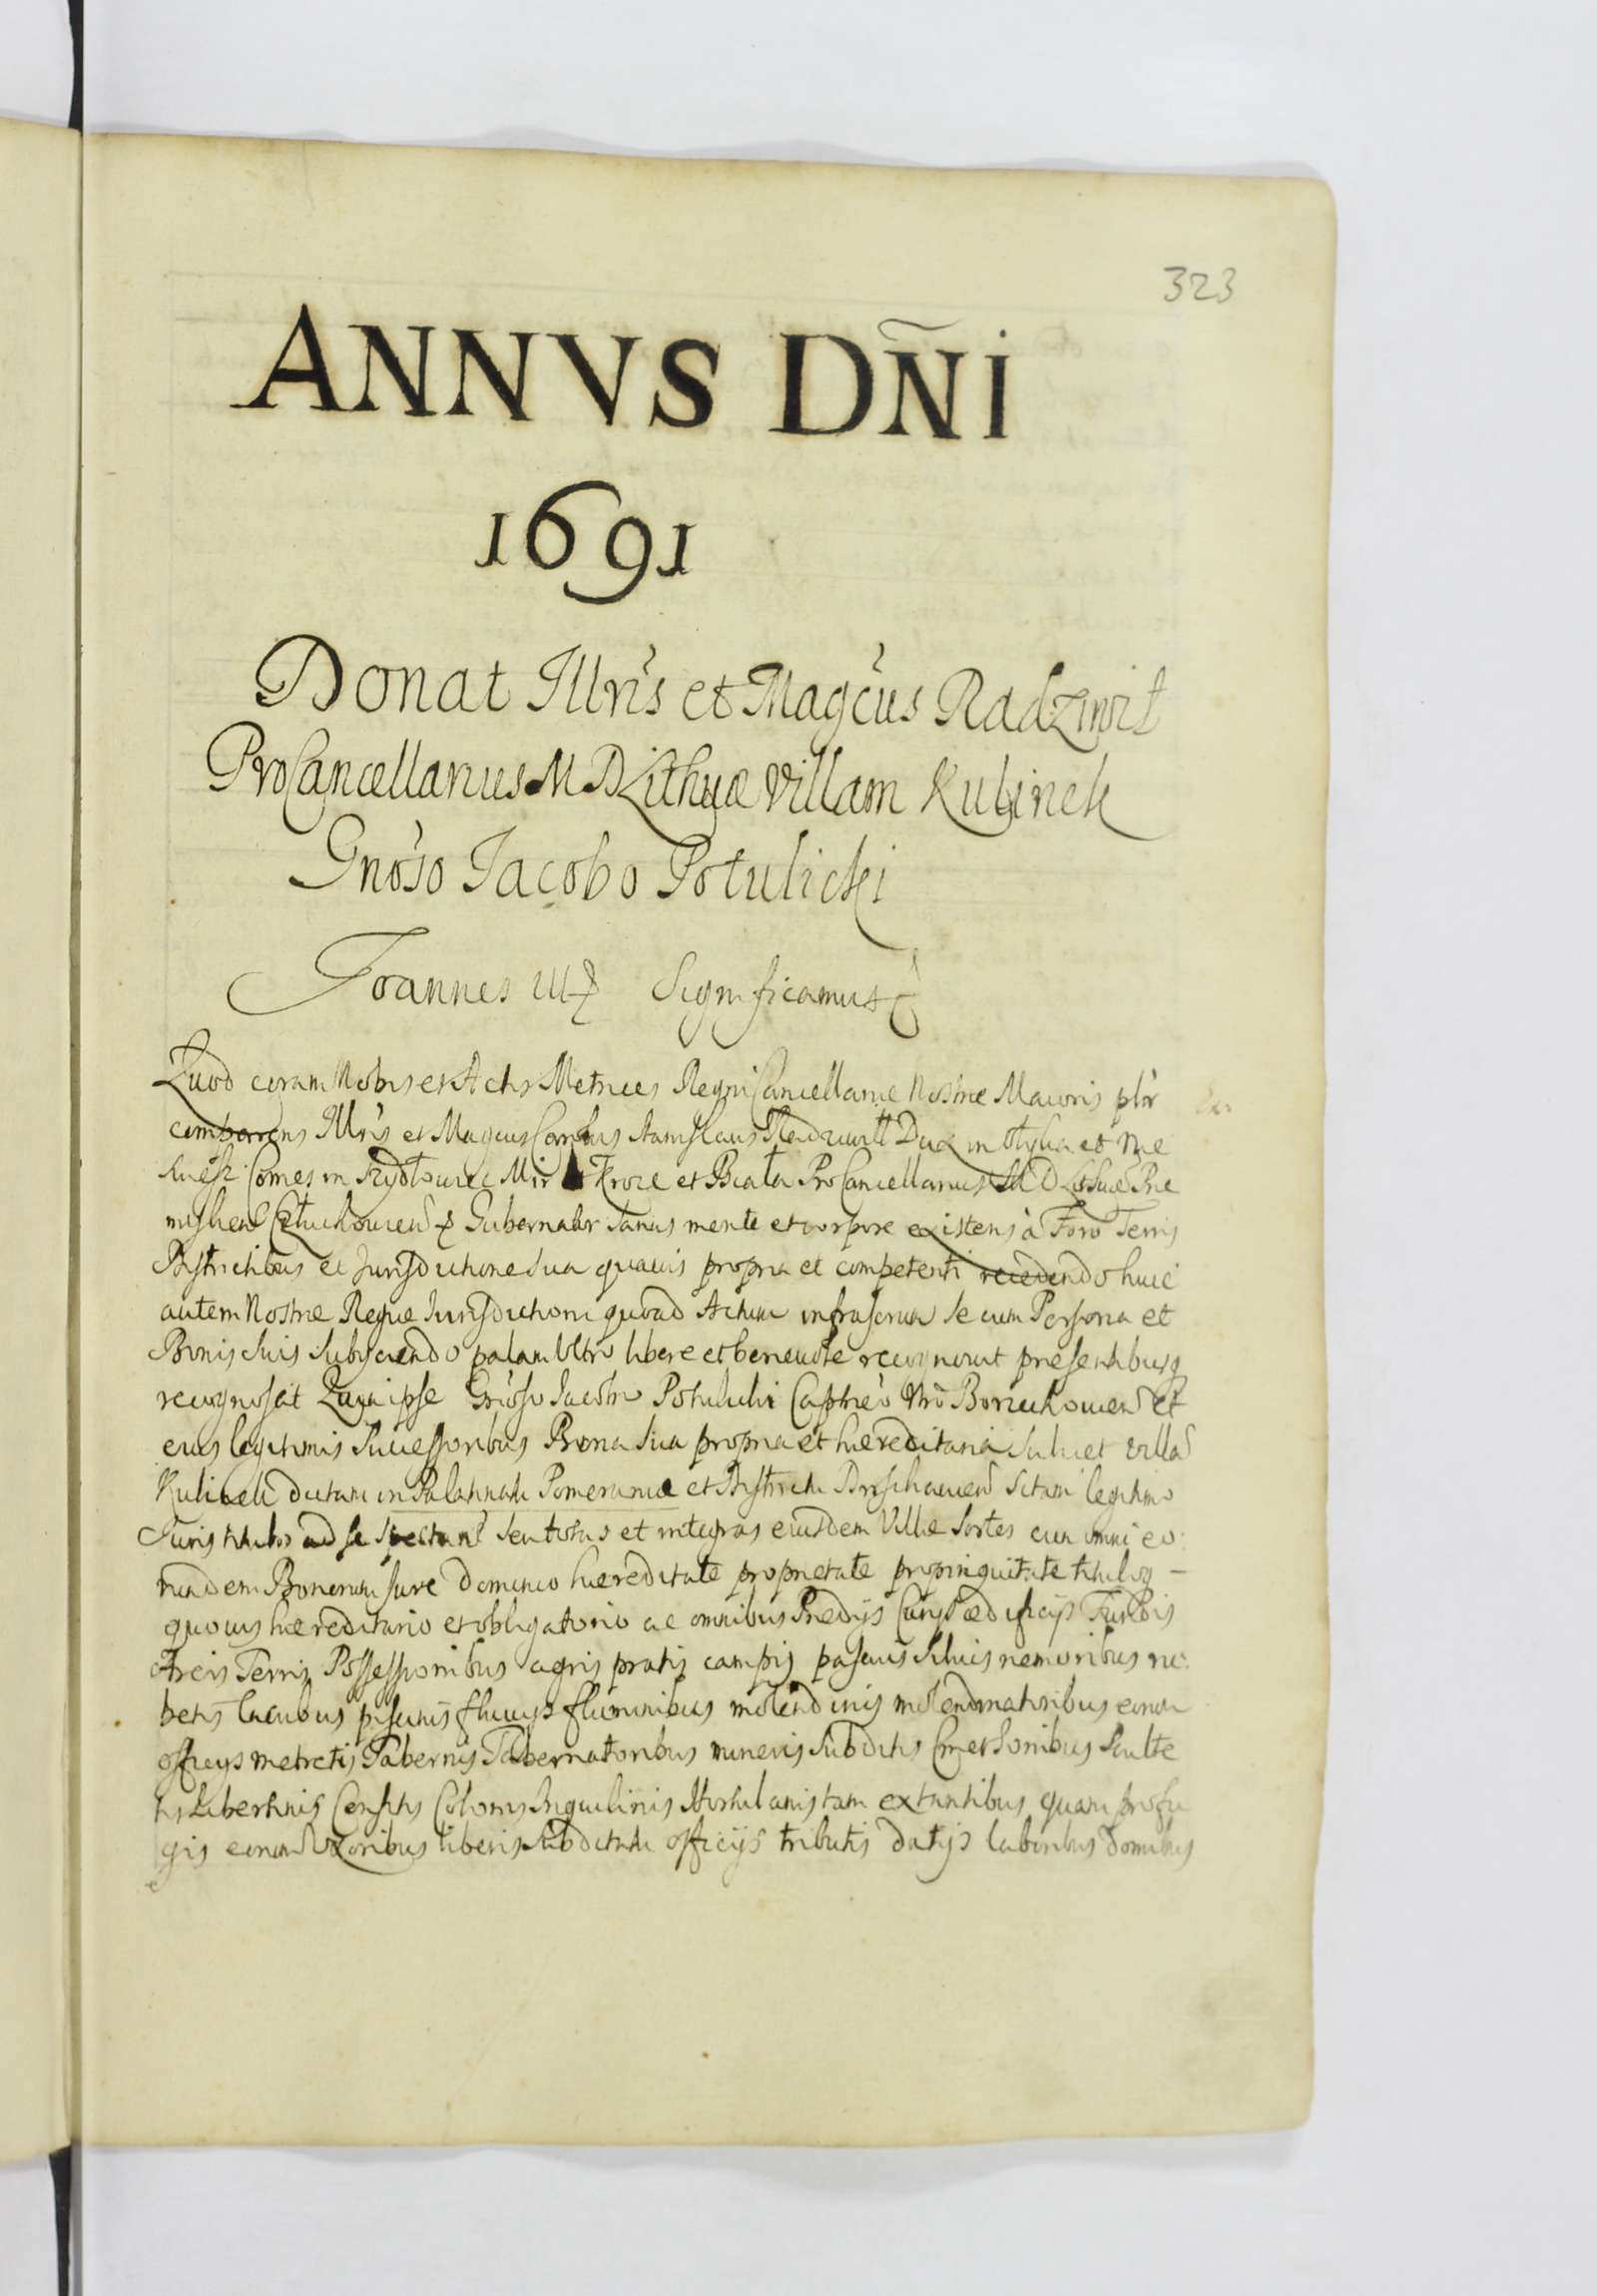 323
ANNVS DN̄I
1691
Donat Illris et Magcus Radziwił
ProCancellarius M D Lithuae Villam Kulinek
Gnoso Jacobo Potulicki
Joannes III Significamus
Quod coram Nobis et Actis Metrices Regni Cancellariae Nostrae Maioris pltr
comparens Illris et Magcus Carolus Stanislaus Radziwill Dux in Olyka et Nie
suiesz Comes in Szydłowiec Mir Kroze et Biała ProCancellarius M D Lithuae Prze
mislien Człuchouien Gubernator Sanus mente et corpore existens à Foro Terris
Districtibus et Jurisdictione Sua quauis propria et competenti recedendo huic
autem Nostrae Regiae Jurisdictioni quoad Actum infrascrum se cum Persona et
Bonis Suis Subyciendo palam Vltro libere et beneuole recognouit presentibusq
recognoscit Quia ipse Gnoso Jacobo Potulicki Capneo Nro Borzechouien et
eius legitimis Successoribus Bona Sua propria et haereditaria Scilicet villa
Kulinek dictam in Palatinatu Pomeraniae et Districtu Dirschauien Sitam legitimo
Juris titulo ad se Spectan Seu totas et integras eiusdem Villae Sortes cum omni eo
rundem Bonorum Jure dominio haereditate proprietate propinquitate tituloq
quouis haereditario et obligatorio ac omnibus Praedijs Curijs aedificijs
Areis Terris Possessionibus agris pratis campis pascuis Siluis nemoribus ru
betis lacubus piscinis fluuijs fluminibus molendinis molendinatoribus eorum
officijs metretis Tabernis Tabernatoribus Subditis Cmetonibus Sculte
tis Libertinis Censitis Colonis Inquilinis Hortulanis tam extantibus quam profu
gis eorum Vxoribus liberis Subditatu officijs tributis datijs laboribus Domibus